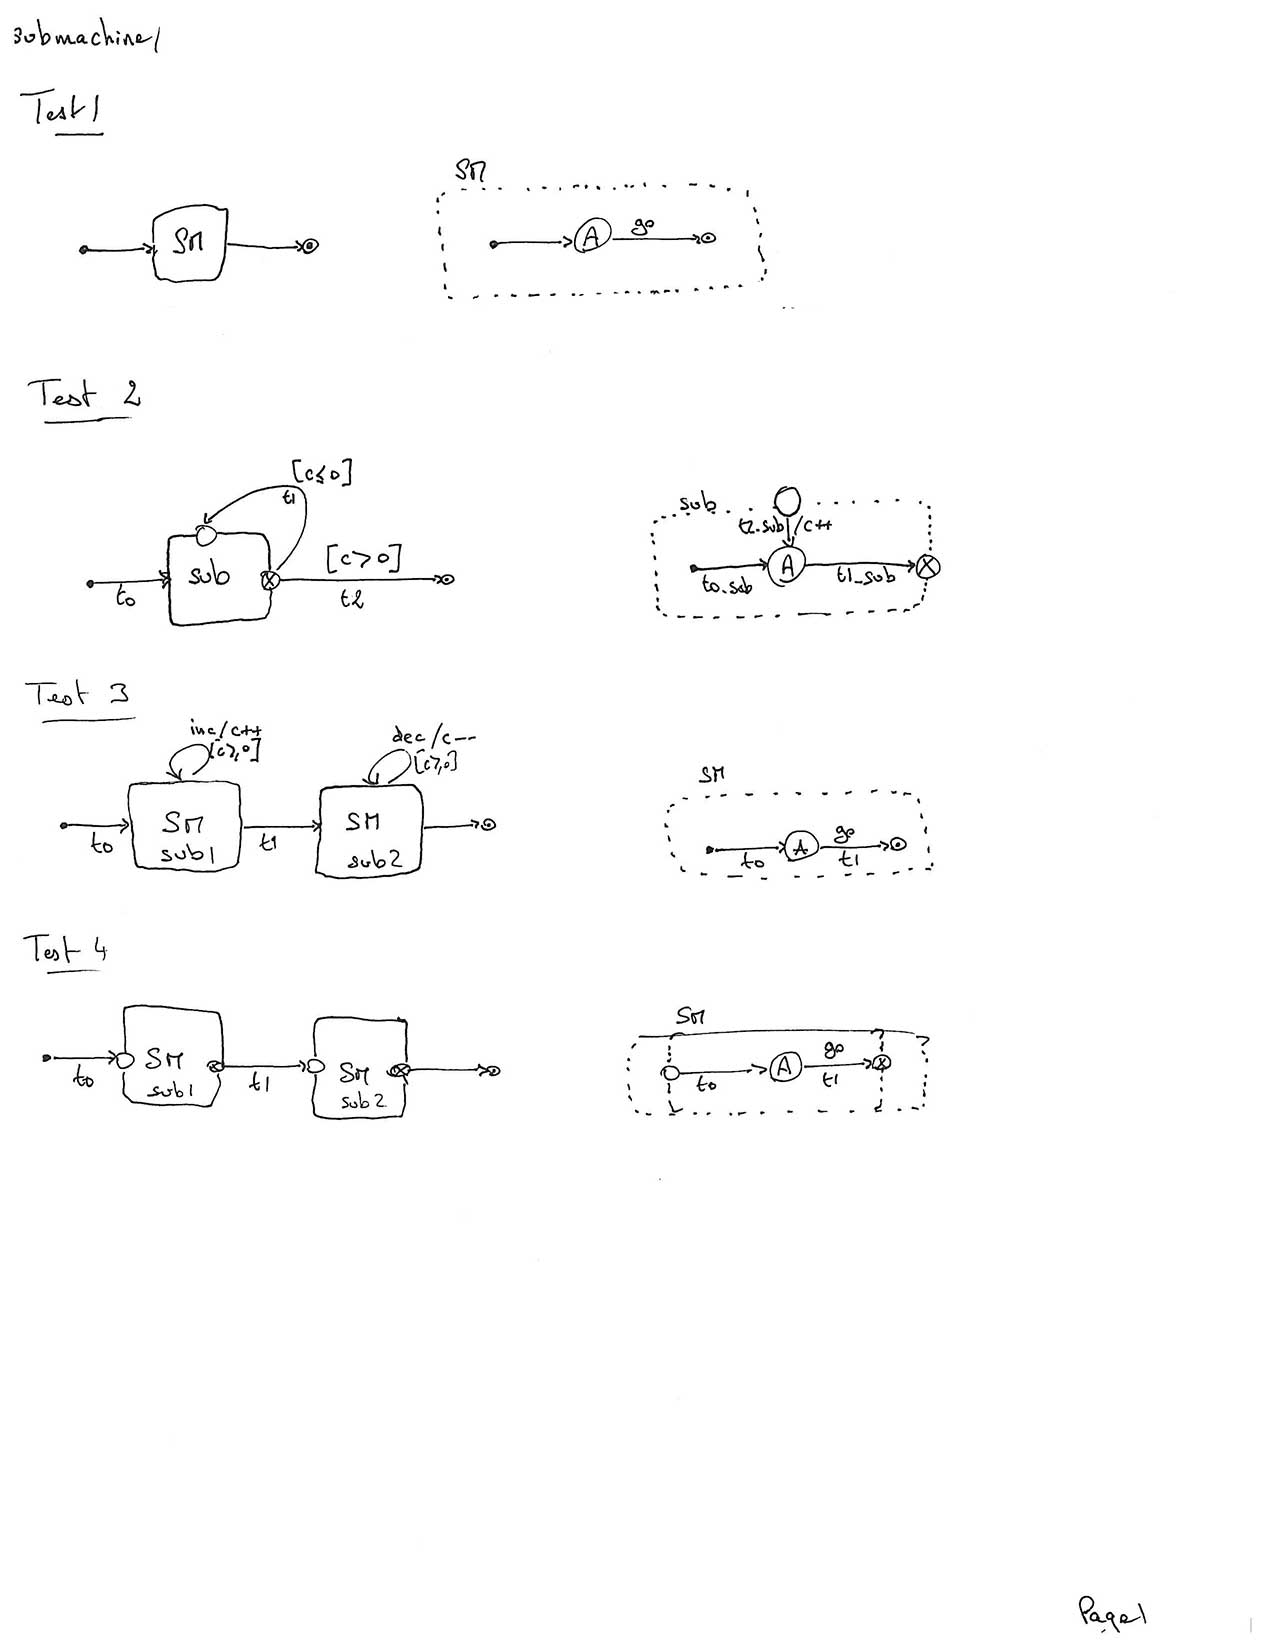 submachine/
Test 1
SM
SM
A
go
Test 2
[c≤0]
t1
sub
[c>0]
t0
t2
sub
t2_sub/c++
A
t0_sub
t1_sub
Test 3
inc/c++
[c≥0]
dec/c--
[c≥0]
SM
sub1
SM
sub2
t0
t1
SM
A
go
t0
t1
Test 4
SM
sub1
SM
sub2
t0
t1
SM
A
go
t0
t1
Page 1